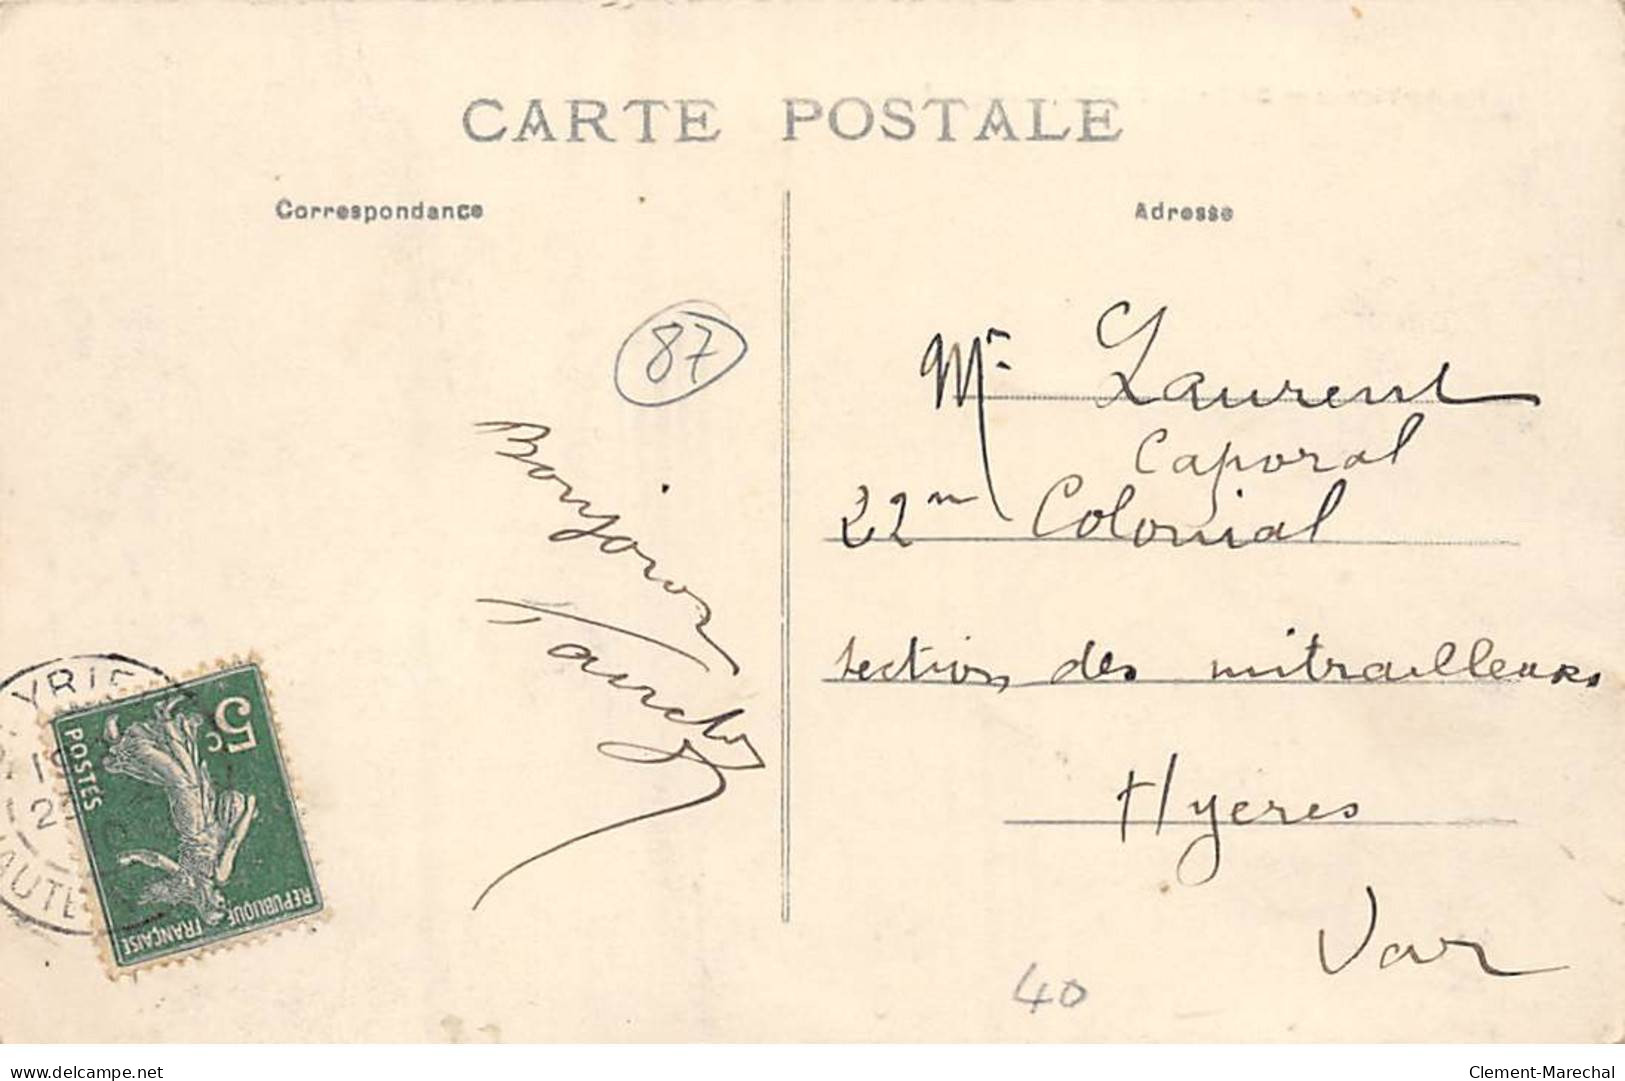 CARTE POSTALE
Correspondance
Adresse
87
Bonjour
Mr Laurent
Caporal
22me Colonial
section des mitrailleurs
Hyères
Var
40
5c
POSTES
REPUBLIQUE FRANÇAISE
YRIE
19
2
AUTE
www.delcampe.net
Clement-Marechal